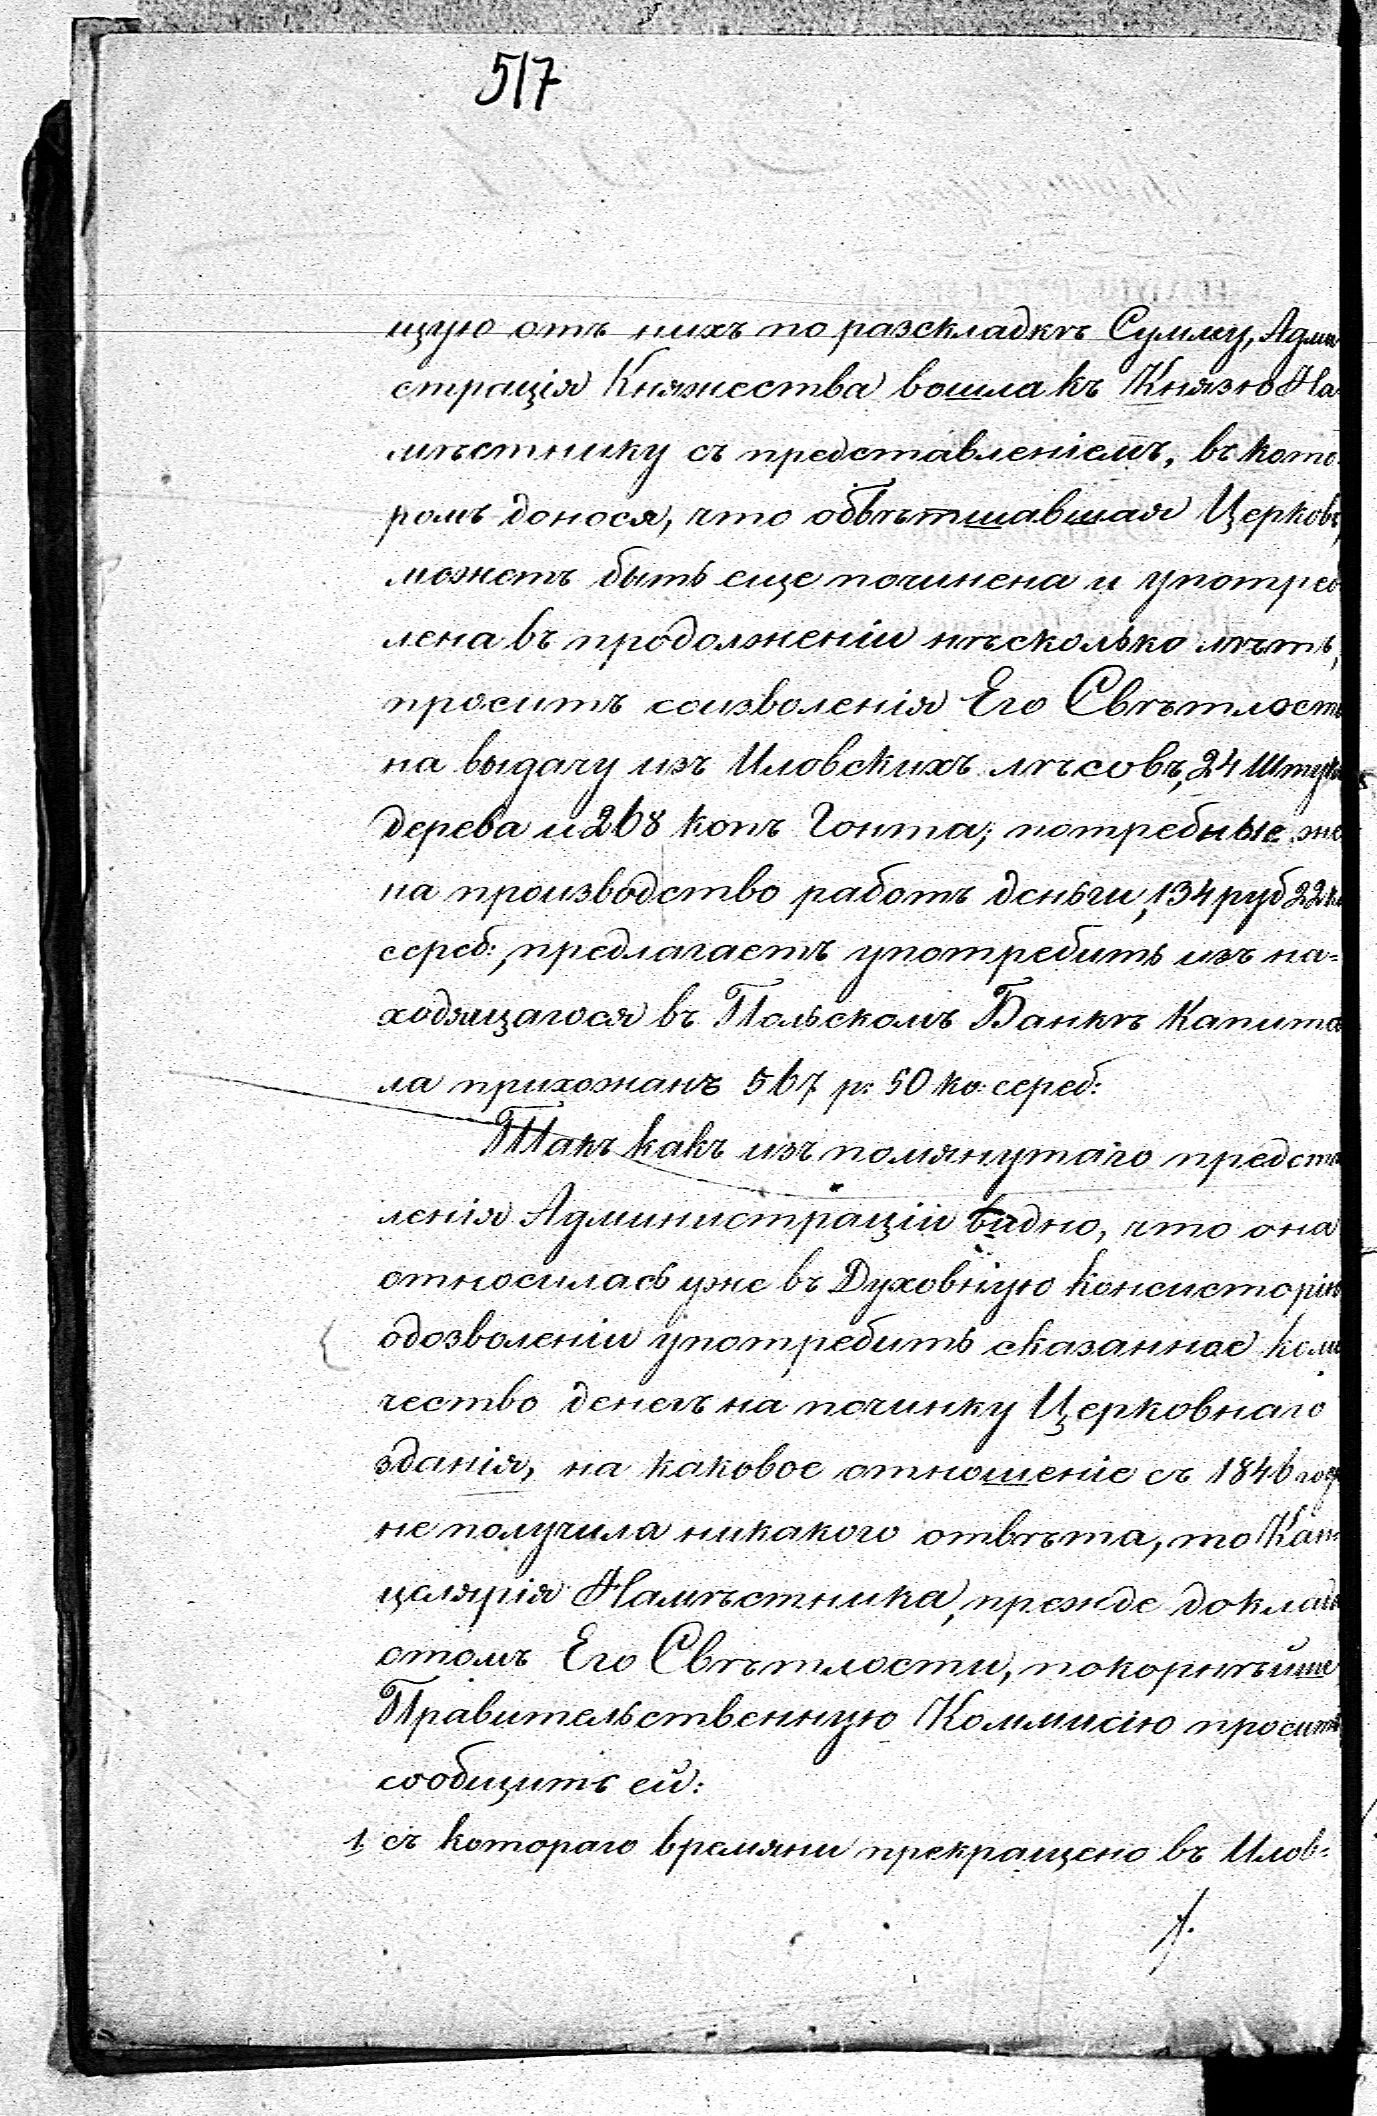 517
щую отъ нихъ по раскладкѣ Сумму, Адми
страція Княжества вошла къ Князю На
мѣстнику съ представленіемъ, въ кото
ромъ донося, что обвѣтшавшая Церковь,
можетъ быть еще починена и употреб
лена въ продолженіи нѣсколько лѣтъ,
проситъ соизволенія Его Свѣтлости
на выдачу изъ Иловскихъ лѣсовъ, 24 Штук
дерева и 268 копъ Гонта; потребные же
на производство работъ деньги, 134 руб 22 к
сереб:, предлагаетъ употребить изъ на=
ходящагося въ Польскомъ Банкѣ Капита
ла прихожанъ 567 р: 50 ко: сереб:
Такъ какъ изъ помянутаго предста
ленія Администраціи видно, что она
относилась уже въ Духовную Консисторію
одозволеніи употребить сказанное коли
чество денегъ на починку Церковнаго
зданія, на каковое отношеніе съ 1846 год
не получила никакого отвѣта, то Кан=
целярія Намѣстника, прежде доклада
отомъ Его Свѣтлости, покорнѣйше
Правительственную Коммисію проситъ
сообщить ей:
1 съ котораго времяни прекращено въ Илов=
/.